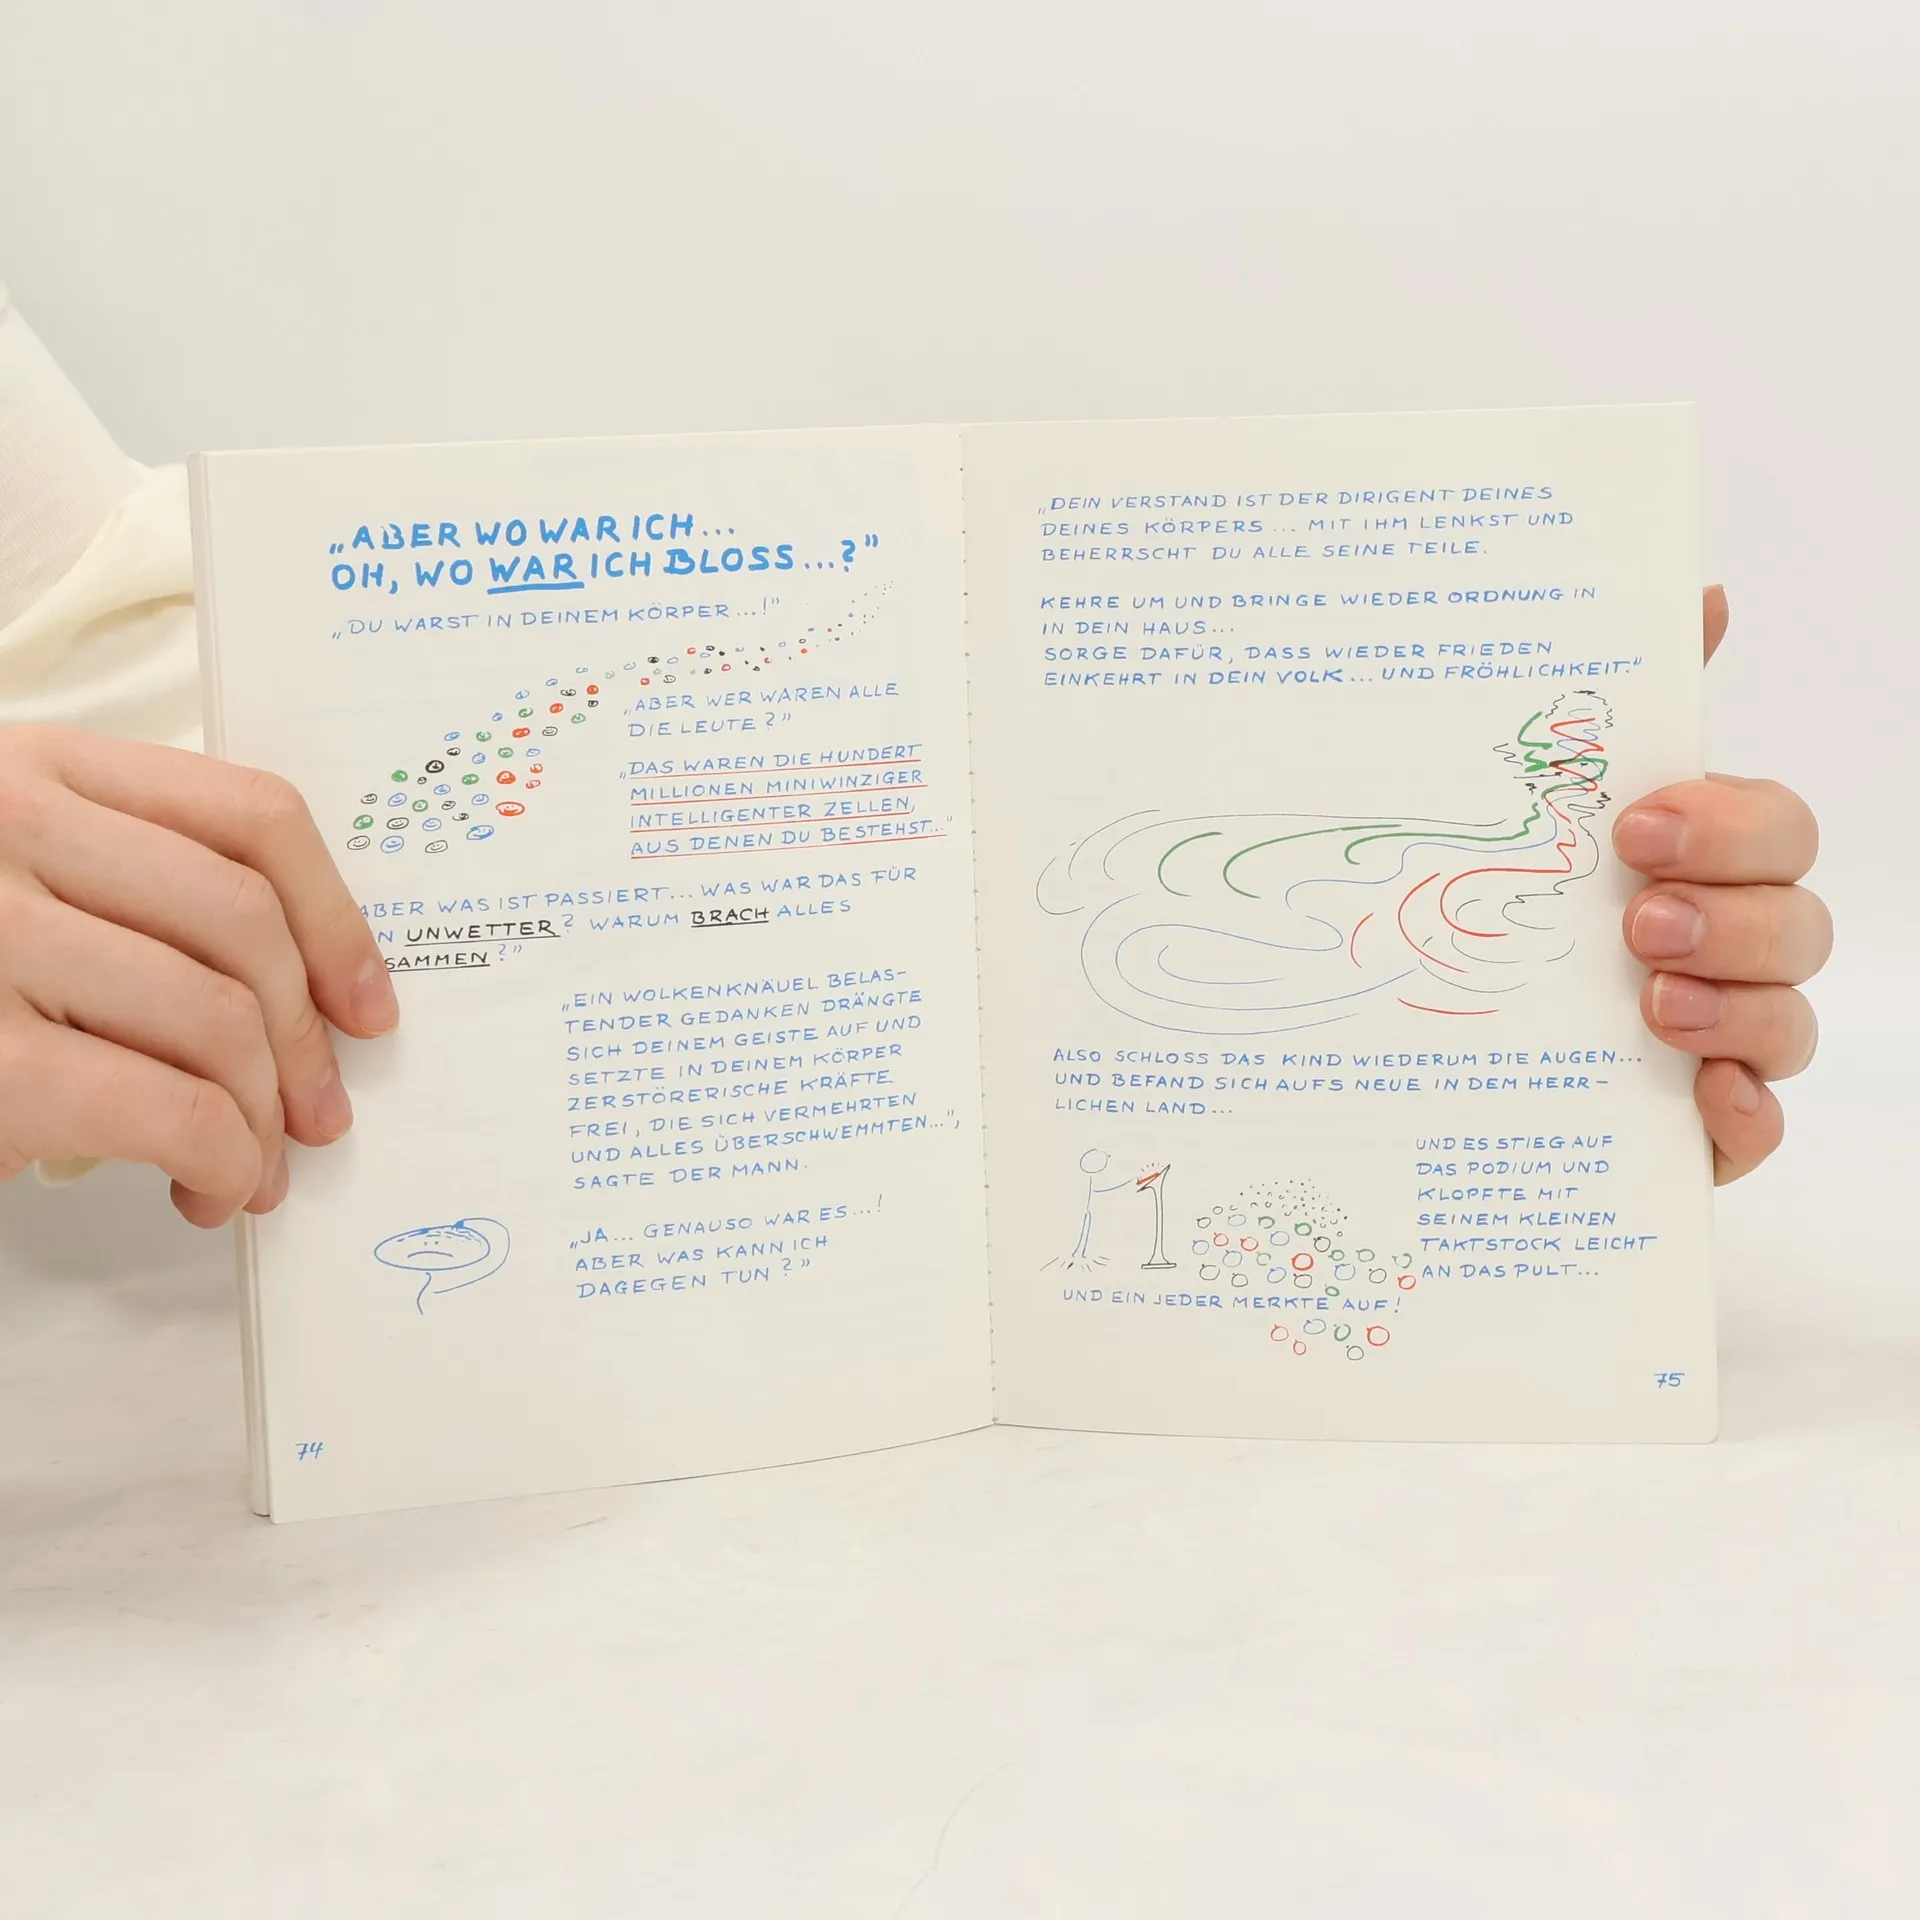 „ABER WO WAR ICH...
OH, WO WAR ICH BLOSS...?”
„DU WARST IN DEINEM KÖRPER...!”
„ABER WER WAREN ALLE
DIE LEUTE?”
„DAS WAREN DIE HUNDERT
MILLIONEN MINIWINZIGER
INTELLIGENTER ZELLEN,
AUS DENEN DU BESTEHST...”
ABER WAS IST PASSIERT... WAS WAR DAS FÜR
N UNWETTER? WARUM BRACH ALLES
SAMMEN?”
„EIN WOLKENKNÄUEL BELAS-
TENDER GEDANKEN DRÄNGTE
SICH DEINEM GEISTE AUF UND
SETZTE IN DEINEM KÖRPER
ZERSTÖRERISCHE KRÄFTE
FREI, DIE SICH VERMEHRTEN
UND ALLES ÜBERSCHWEMMTEN...”,
SAGTE DER MANN.
„JA... GENAUSO WAR ES...!
ABER WAS KANN ICH
DAGEGEN TUN?”
74
„DEIN VERSTAND IST DER DIRIGENT DEINES
DEINES KÖRPERS... MIT IHM LENKST UND
BEHERRSCHT DU ALLE SEINE TEILE.
KEHRE UM UND BRINGE WIEDER ORDNUNG IN
IN DEIN HAUS...
SORGE DAFÜR, DASS WIEDER FRIEDEN
EINKEHRT IN DEIN VOLK... UND FRÖHLICHKEIT.”
ALSO SCHLOSS DAS KIND WIEDERUM DIE AUGEN...
UND BEFAND SICH AUFS NEUE IN DEM HERR-
LICHEN LAND...
UND ES STIEG AUF
DAS PODIUM UND
KLOPFTE MIT
SEINEM KLEINEN
TAKTSTOCK LEICHT
AN DAS PULT...
UND EIN JEDER MERKTE AUF!
75